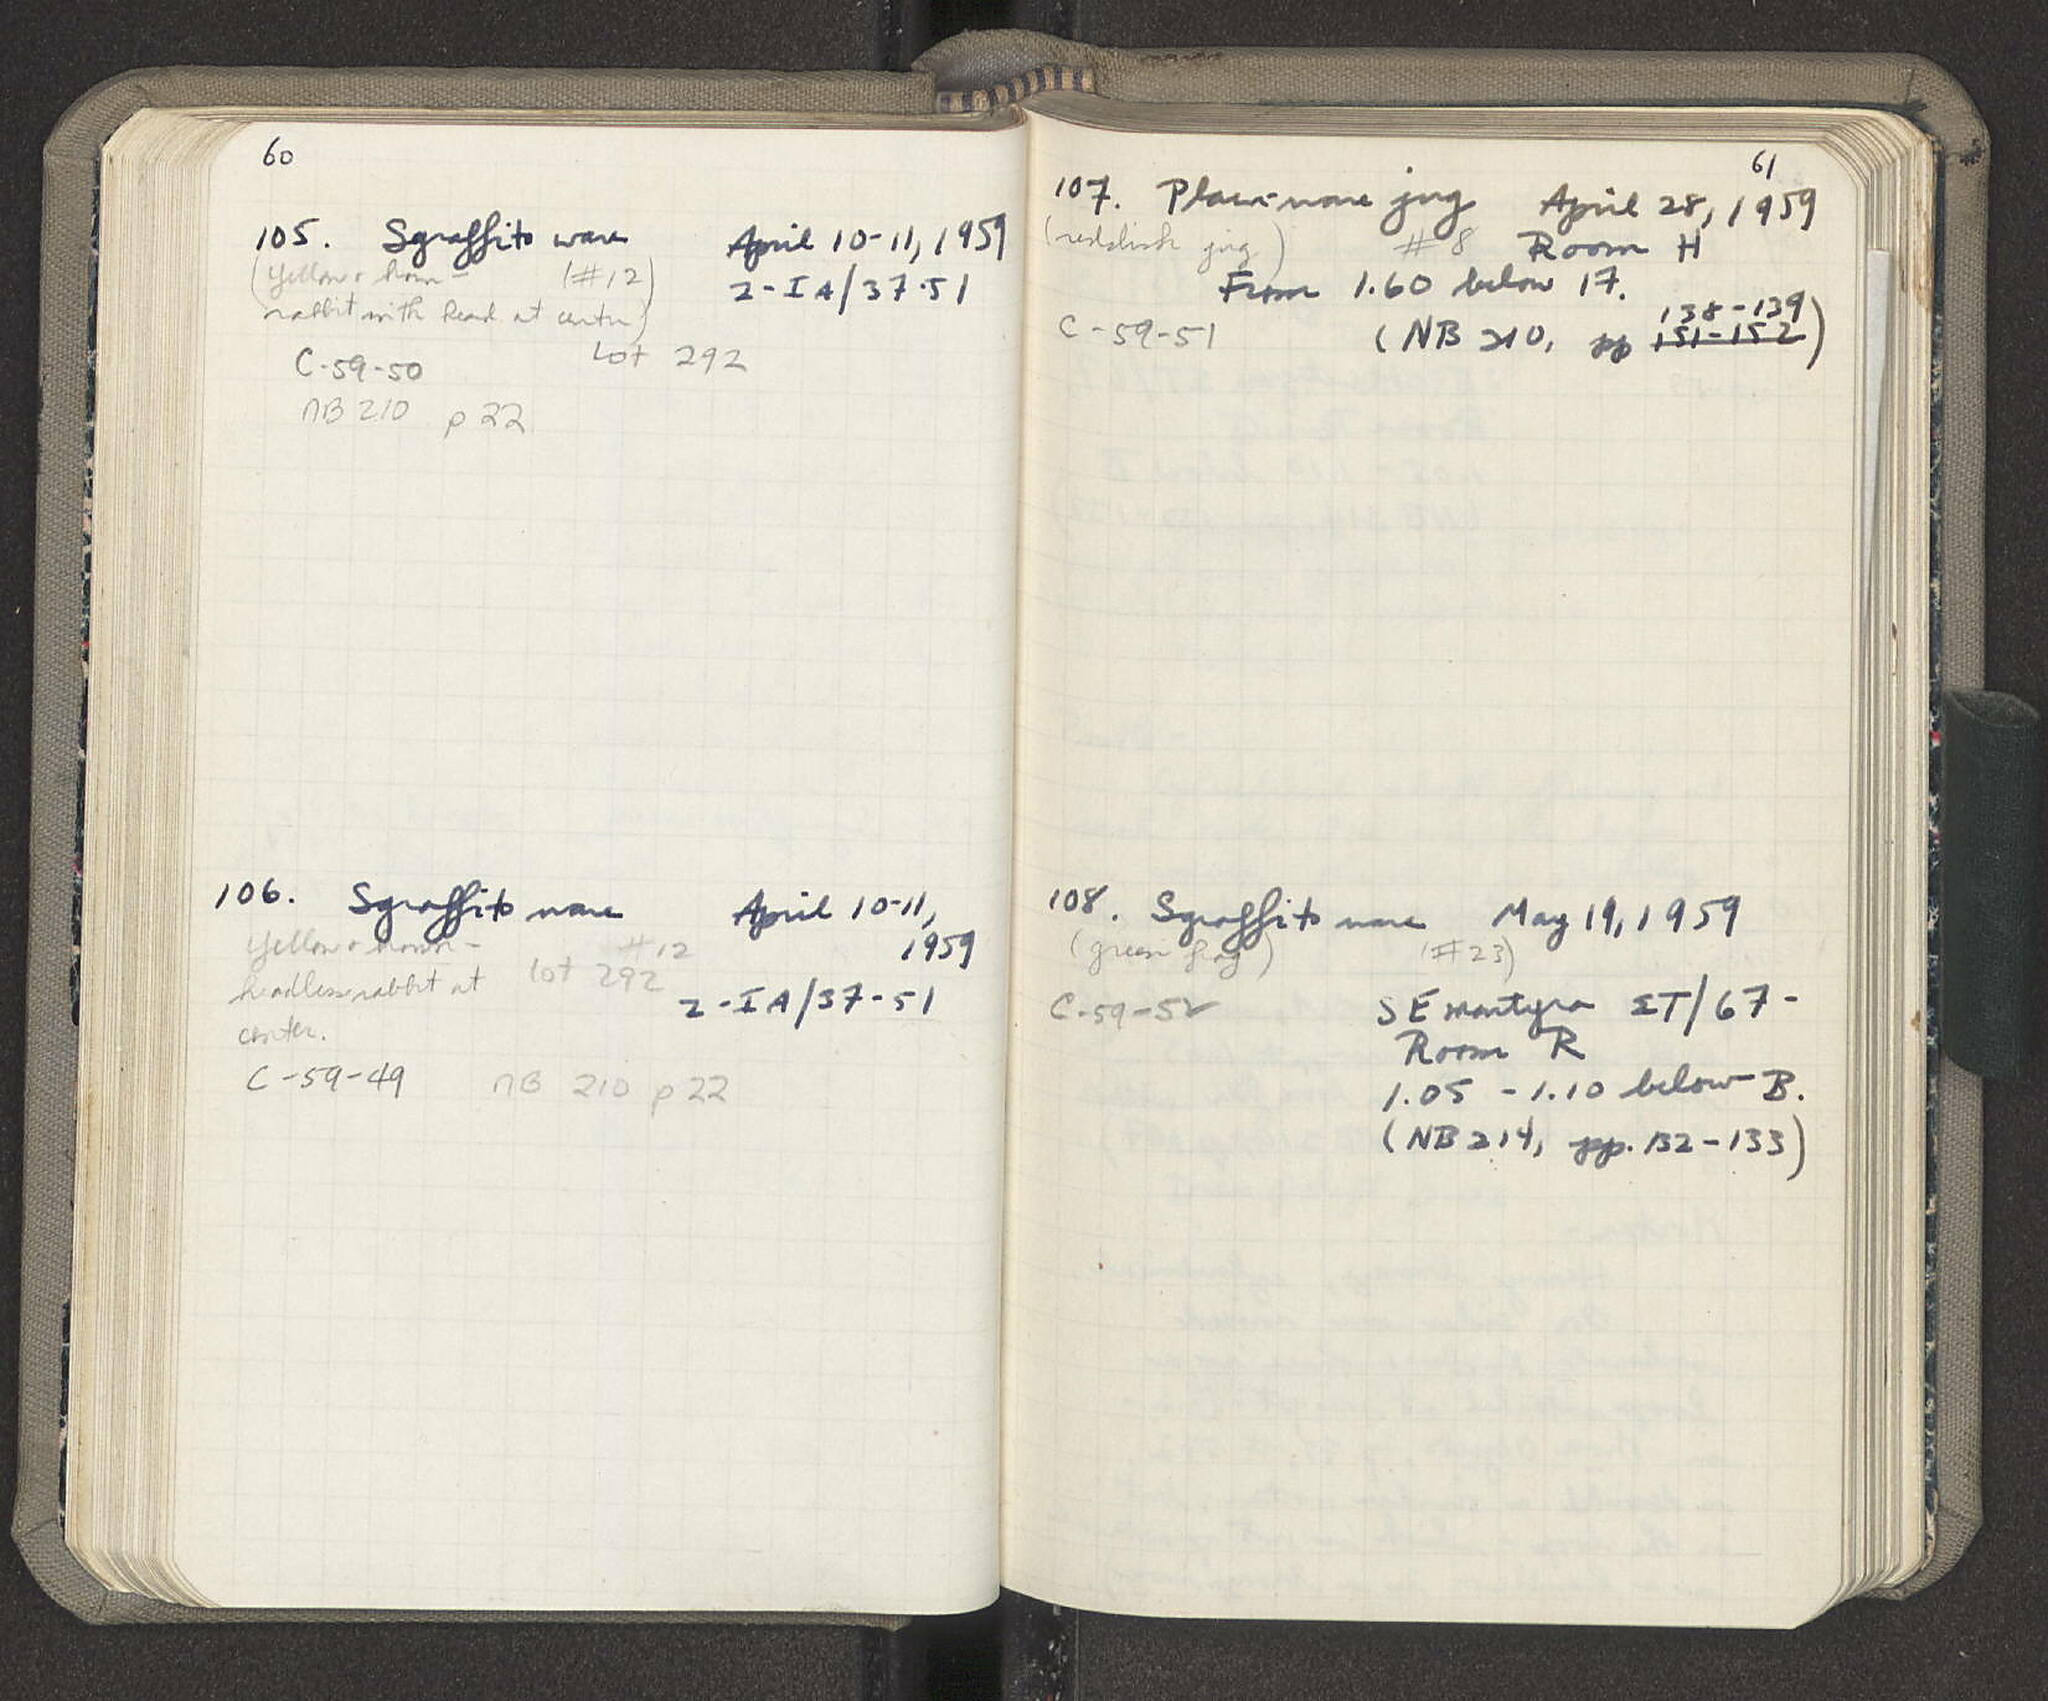 60
105. Sgraffito ware April 10-11, 1959
(Yellow & brown - (#12) 2-IA/37-51
rabbit with head at center)
C-59-50 Lot 292
NB 210 p 22
106. Sgraffito ware April 10-11,
1959
Yellow & brown - #12
headless rabbit at Lot 292
center. 2-IA/37-51
C-59-49 NB 210 p 22
61
107. Plain-ware jug April 28, 1959
(reddish jug) #8 Room H
From 1.60 below 17.
138-139
C-59-51 (NB 210, pp 151-152)
108. Sgraffito ware May 19, 1959
(green frag) (#23)
C-59-52 SE martyra ΣT/67-
Room R
1.05 - 1.10 below B.
(NB 214, pp. 132-133)